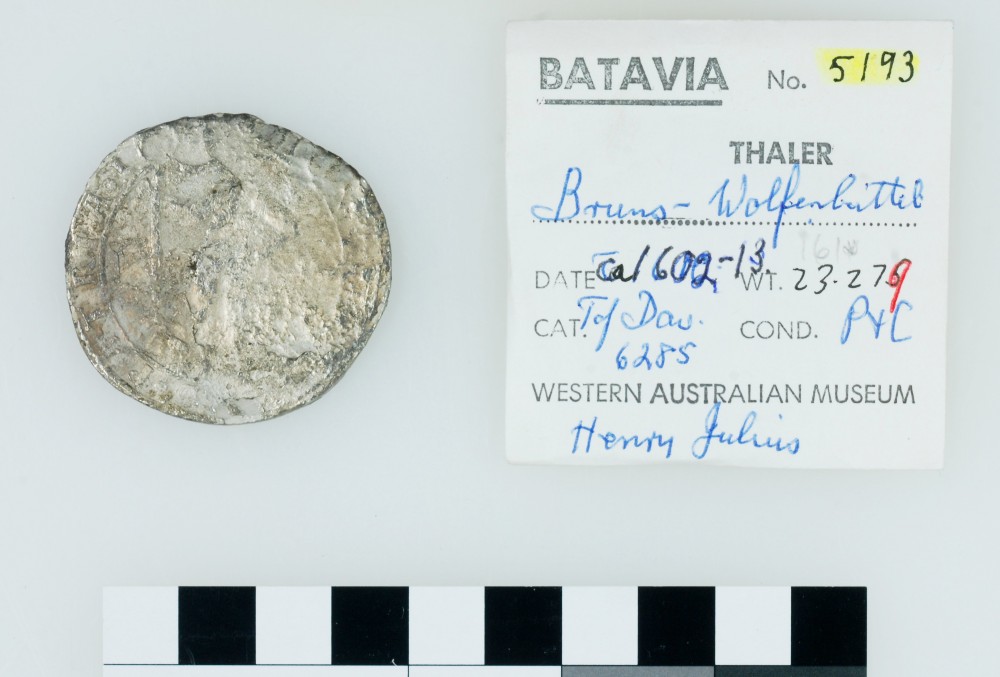 BATAVIA No. 5193
THALER
Bruns-Wolfenbüttel
DATE ca 1602-13. WT. 23.279
CAT. Tf Dav. COND. P+C
6285
WESTERN AUSTRALIAN MUSEUM
Henry Julius